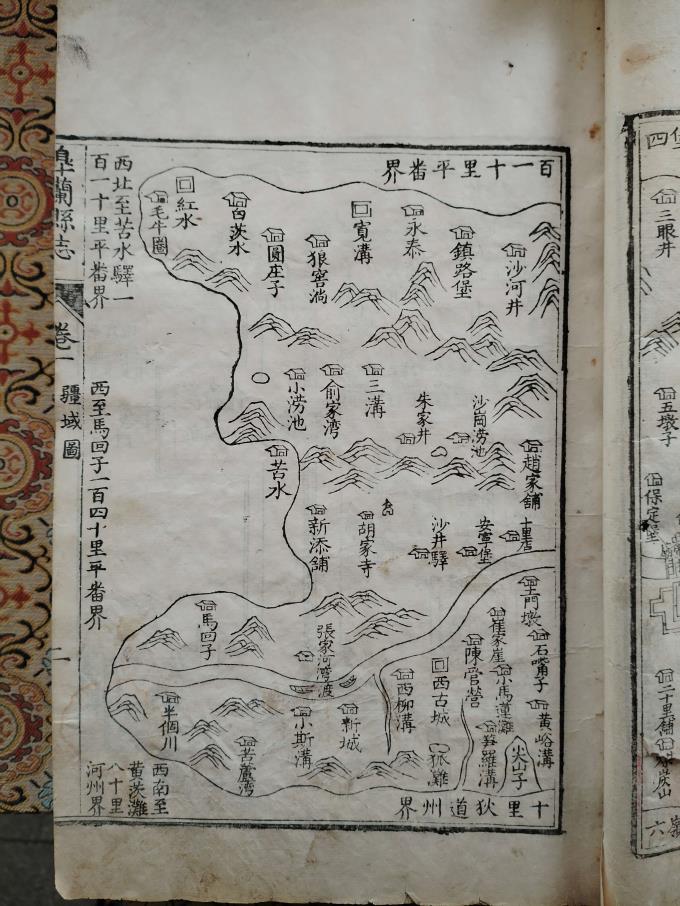 百一十里平番界
西北至苦水驛一
百一十里平番界
皐蘭縣志
卷一
疆域圖
西至馬回子一百四十里平番界
二
西南至
黄茨灘
八十里
河州界
十里狄道州界
沙河井
鎮路堡
永泰
寬溝
狼窖淌
圓庄子
白茨水
紅水
毛牛圈
沙崗澇池
朱家井
三溝
俞家湾
小澇池
趙家舖
苦水
十里店
安寧堡
沙井驛
胡家寺
新添舖
土門墩
石嘴子
黄峪溝
崔家崖
小馬蓮灘
陳官營
西古城
西柳溝
張家河灣渡
馬回子
尖山子
狐灘
新城
小斯溝
苦蘆湾
半個川
三眼井
五墩子
保定堡
二十里舖
四
六